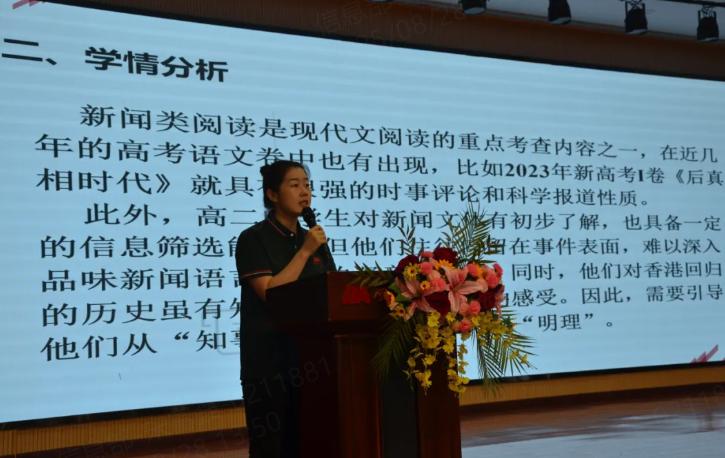 二、学情分析
新闻类阅读是现代文阅读的重点考查内容之一，在近几
年的高考语文卷中也有出现，比如2023年新高考I卷《后真
相时代》就具 强的时事评论和科学报道性质。
此外，高二 生对新闻文 有初步了解，也具备一定
的信息筛选 但他们往往 在事件表面，难以深入
品味新闻语 同时，他们对香港回归
的历史虽有 感受。因此，需要引导
他们从“知 “明理”。